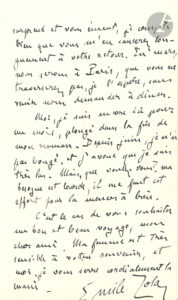 surpris et vous émeut, je compte
bien que vous m'en causerez lon-
guement à votre retour. En mars,
nous serons à Paris, que vous ne
traverserez pas, je l'espère, sans
venir nous demander à dîner.
Moi, je suis encore ici pour
un mois, plongé dans la fin de
mon roman. Depuis juin, je n'ai
pas bougé et j'avoue que je suis
très las. Mais, que voulez-vous, ma
besogne est lourde, il me faut cet
effort pour la mener à bien.
C'est le cas de vous souhaiter
un bon et beau voyage, mon
cher ami. Ma femme est très
sensible à votre souvenir, et
moi je vous serre cordialement la
main.
Emile Zola